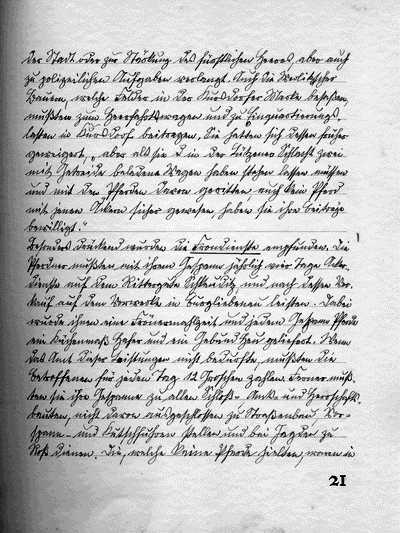 der Stadt oder zur Stärkung des fürstlichen Heeres, aber auch
zu polizeilichen Aufgaben verlangt. Auch die Merlitzscher
Bauern, welche Felder in der Kursdorfer Marke besaßen,
mußten zum Heerfahrtswagen und zu Einquartierungs-
lasten in Kursdorf beitragen. Sie hatten sich dessen früher
geweigert, „aber als sie in der Lützener Schlacht zwei
mit Getreide beladene Wagen haben stehen lassen müssen
und mit den Pferden davon geritten auch kein Pferd
mit jenen Äkern sicher gewesen haben sie ihre beiträge
bewilligt."
Besonders drückend wurden die Frondienste empfunden. Die
Pferdner mußten mit ihrem Gespann jährlich vier Tage Acker-
dienste auf dem Rittergute Schkeuditz und nach dessen Ver-
kauf auf dem Vorwerke in Burgliebenau leisten. Dabei
wurde ihnen eine Frönermahlzeit und jedem Gespann Pferde
ein Küchenmaß Hafer und ein Gebund Heu geliefert. Wenn
das Amt dieser Leistungen nicht bedurfte, mußten die
Betroffenen für jeden Tag 12 Groschen zahlen. Ferner muß-
ten sie ihre Gespanne zu allen Schloß- Amts- und Herrschafts-
bauten, nicht davon ausgeschlossen zu Straßenbau, Vor-
spann- und Kutschfuhren stellen und bei Jagden zu
Roß dienen. Die, welche keine Pferde hielten, waren in
21